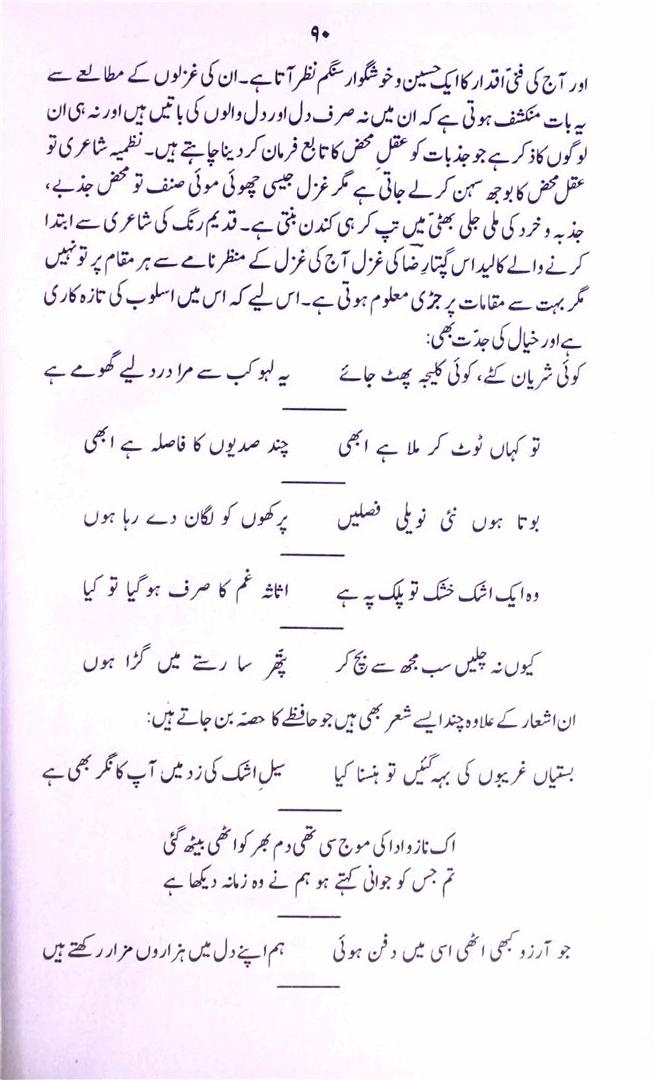 ۹۰
اور آج کی فنّی اقدار کا ایک حسین و خوشگوار سنگم نظر آتا ہے۔ ان کی غزلوں کے مطالعے سے
یہ بات منکشف ہوتی ہے کہ ان میں نہ صرف دل اور دل والوں کی باتیں ہیں اور نہ ہی ان
لوگوں کا ذکر ہے جو جذبات کو عقلِ محض کا تابع فرمان کر دینا چاہتے ہیں۔ نظمیہ شاعری تو
عقل محض کا بوجھ سہن کر لے جاتی ہے مگر غزل جیسی چھوئی موئی صنف تو محض جذبے،
جذبہ و خرد کی ملی جلی بھٹیّ میں تپ کر ہی کندن بنتی ہے۔ قدیم رنگ کی شاعری سے ابتدا
کرنے والے کالیداس گپتا رضاؔ کی غزل آج کی غزل کے منظر نامے سے ہر مقام پر تو نہیں
مگر بہت سے مقامات پر جڑی معلوم ہوتی ہے۔ اس لیے کہ اس میں اسلوب کی تازہ کاری
ہے اور خیال کی جدّت بھی:
کوئی شریان کٹے، کوئی کلیجہ پھٹ جائے یہ لہو کب سے مرا درد لیے گھومے ہے
تو کہاں ٹوٹ کر ملا ہے ابھی چند صدیوں کا فاصلہ ہے ابھی
بوتا ہوں نئی نویلی فصلیں پرکھوں کو لگان دے رہا ہوں
وہ ایک اشک خشک تو پلک پہ ہے اثاثہ غم کا صرف ہو گیا تو کیا
کیوں نہ چلیں سب مجھ سے بچ کر پتّھر سا رستے میں گڑا ہوں
ان اشعار کے علاوہ چند ایسے شعر بھی ہیں جو حافظے کا حصّہ بن جاتے ہیں:
بستیاں غریبوں کی بہہ گئیں تو ہنسنا کیا سیلِ اشک کی زد میں آپ کا نگر بھی ہے
اک ناز و ادا کی موج سی تھی دم بھر کو اٹھی بیٹھ گئی
تم جس کو جوانی کہتے ہو ہم نے وہ زمانہ دیکھا ہے
جو آرزو کبھی اٹھی اسی میں دفن ہوئی ہم اپنے دل میں ہزاروں مزار رکھتے ہیں